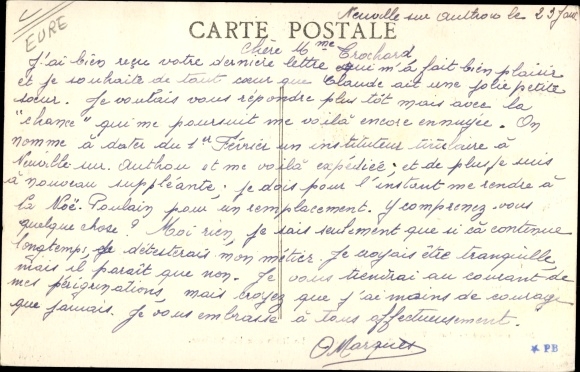 EURE
Neuville sur Authou le 23 Janv
CARTE POSTALE
Chère Mme Crochard
J'ai bien reçu votre dernière lettre qui m'a fait bien plaisir
et je souhaite de tout cœur que Claude ait une jolie petite
sœur. Je voulais vous répondre plus tôt mais avec la
"chance" qui me poursuit me voilà encore ennuyée. On
nomme à dater du 1er Février un instituteur titulaire à
Neuville sur Authou et me voilà expédiée; et de plus je suis
à nouveau suppléante. Je dois pour l'instant me rendre à
la Noë-Poulain pour un remplacement. Y comprenez-vous
quelque chose ? Moi rien, je sais seulement que si cà continue
longtemps, je détesterais mon métier. Je croyais être tranquille,
mais il paraît que non. Je vous tiendrai au courant de
mes périgrinations, mais croyez que j'ai moins de courage
que jamais. Je vous embrasse à tous affectueusement.
O Marquès
* PB